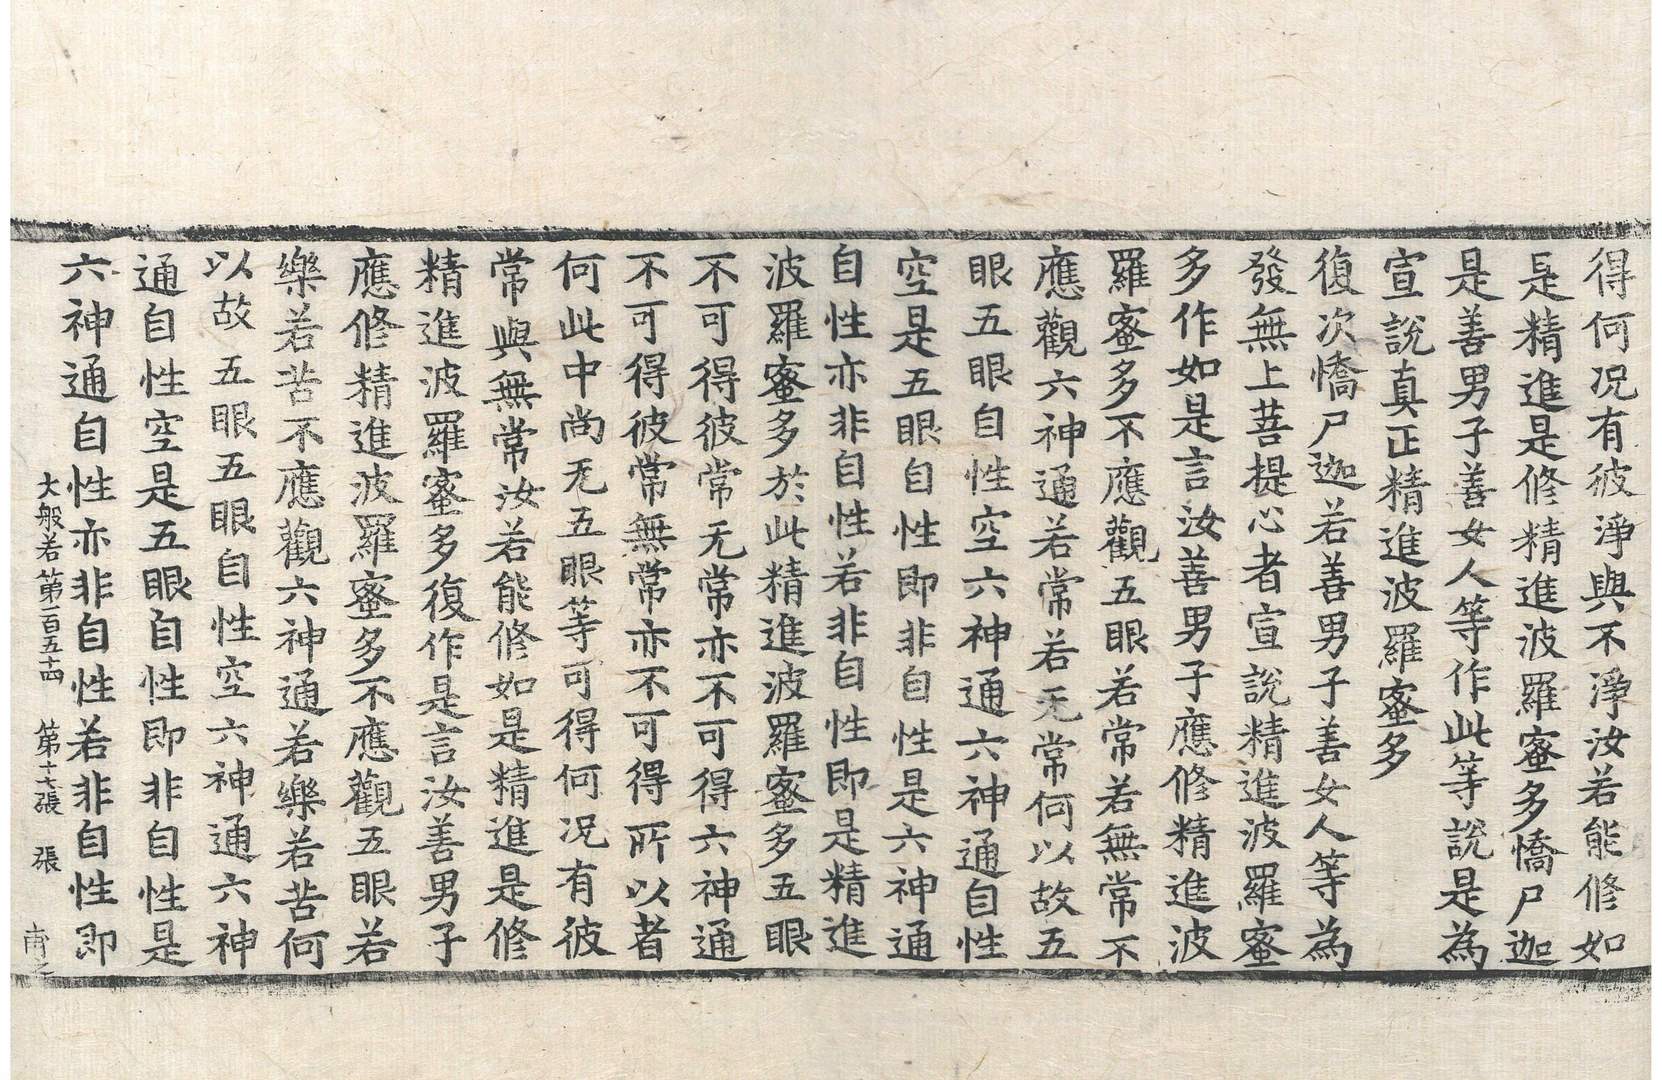 得何况有彼淨與不淨汝若能修如
是精進是修精進波羅蜜多憍尸迦
是善男子善女人等作此等說是為
宣說真正精進波羅蜜多
復次憍尸迦若善男子善女人等為
發無上菩提心者宣說精進波羅蜜
多作如是言汝善男子應修精進波
羅蜜多不應觀五眼若常若無常不
應觀六神通若常若无常何以故五
眼五眼自性空六神通六神通自性
空是五眼自性即非自性是六神通
自性亦非自性若非自性即是精進
波羅蜜多於此精進波羅蜜多五眼
不可得彼常无常亦不可得六神通
不可得彼常無常亦不可得所以者
何此中尚无五眼等可得何况有彼
常與無常汝若能修如是精進是修
精進波羅蜜多復作是言汝善男子
應修精進波羅蜜多不應觀五眼若
樂若苦不應觀六神通若樂若苦何
以故五眼五眼自性空六神通六神
通自性空是五眼自性即非自性是
六神通自性亦非自性若非自性即
大般若第一百五十四 第十七張 張